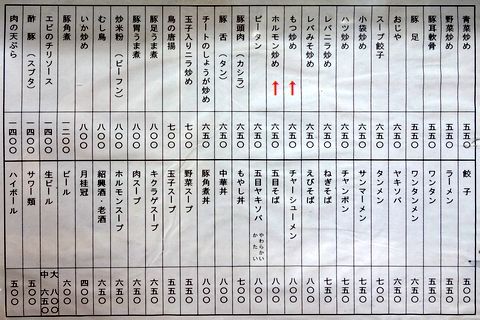 青菜炒め 五五〇
野菜炒め 五五〇
豚耳軟骨 五五〇
豚足 五五〇
おじや 六五〇
スープ餃子 六五〇
小袋炒め 六五〇
ハツ炒め 六五〇
レバニラ炒め 六五〇
レバみそ炒め 六五〇
もつ炒め 六五〇
ホルモン炒め 六五〇
ピータン 六五〇
豚頭肉(カシラ) 六五〇
豚舌(タン) 六五〇
チートのしょうが炒め 六五〇
玉子入りニラ炒め 七〇〇
鳥の唐揚 七〇〇
豚足うま煮 八〇〇
豚胃うま煮 八〇〇
炒米粉(ビーフン) 八〇〇
むし鳥 八〇〇
いか炒め 八〇〇
豚角煮 一二〇〇
エビのチリソース 一四〇〇
酢豚(スブタ) 一四〇〇
肉の天ぷら 一四〇〇
餃子 五〇〇
ラーメン 五五〇
ワンタン 五五〇
ワンタンメン 六五〇
ヤキソバ 六五〇
タンメン 六五〇
サンマーメン 七五〇
チャンポン 七五〇
ねぎそば 七五〇
えびそば 八〇〇
チャーシューメン 八〇〇
五目そば 八〇〇
五目ヤキソバ やわらかい かたい 八〇〇
もやし丼 七〇〇
中華丼 八〇〇
豚角煮丼 八〇〇
野菜スープ 五〇〇
玉子スープ 五〇〇
キクラゲスープ
肉スープ
ホルモンスープ
紹興酒・老酒 八〇〇
月桂冠 四〇〇
ビール 六〇〇
生ビール 大 八〇〇 中 六五〇
サワー類 五〇〇
ハイボール 五〇〇